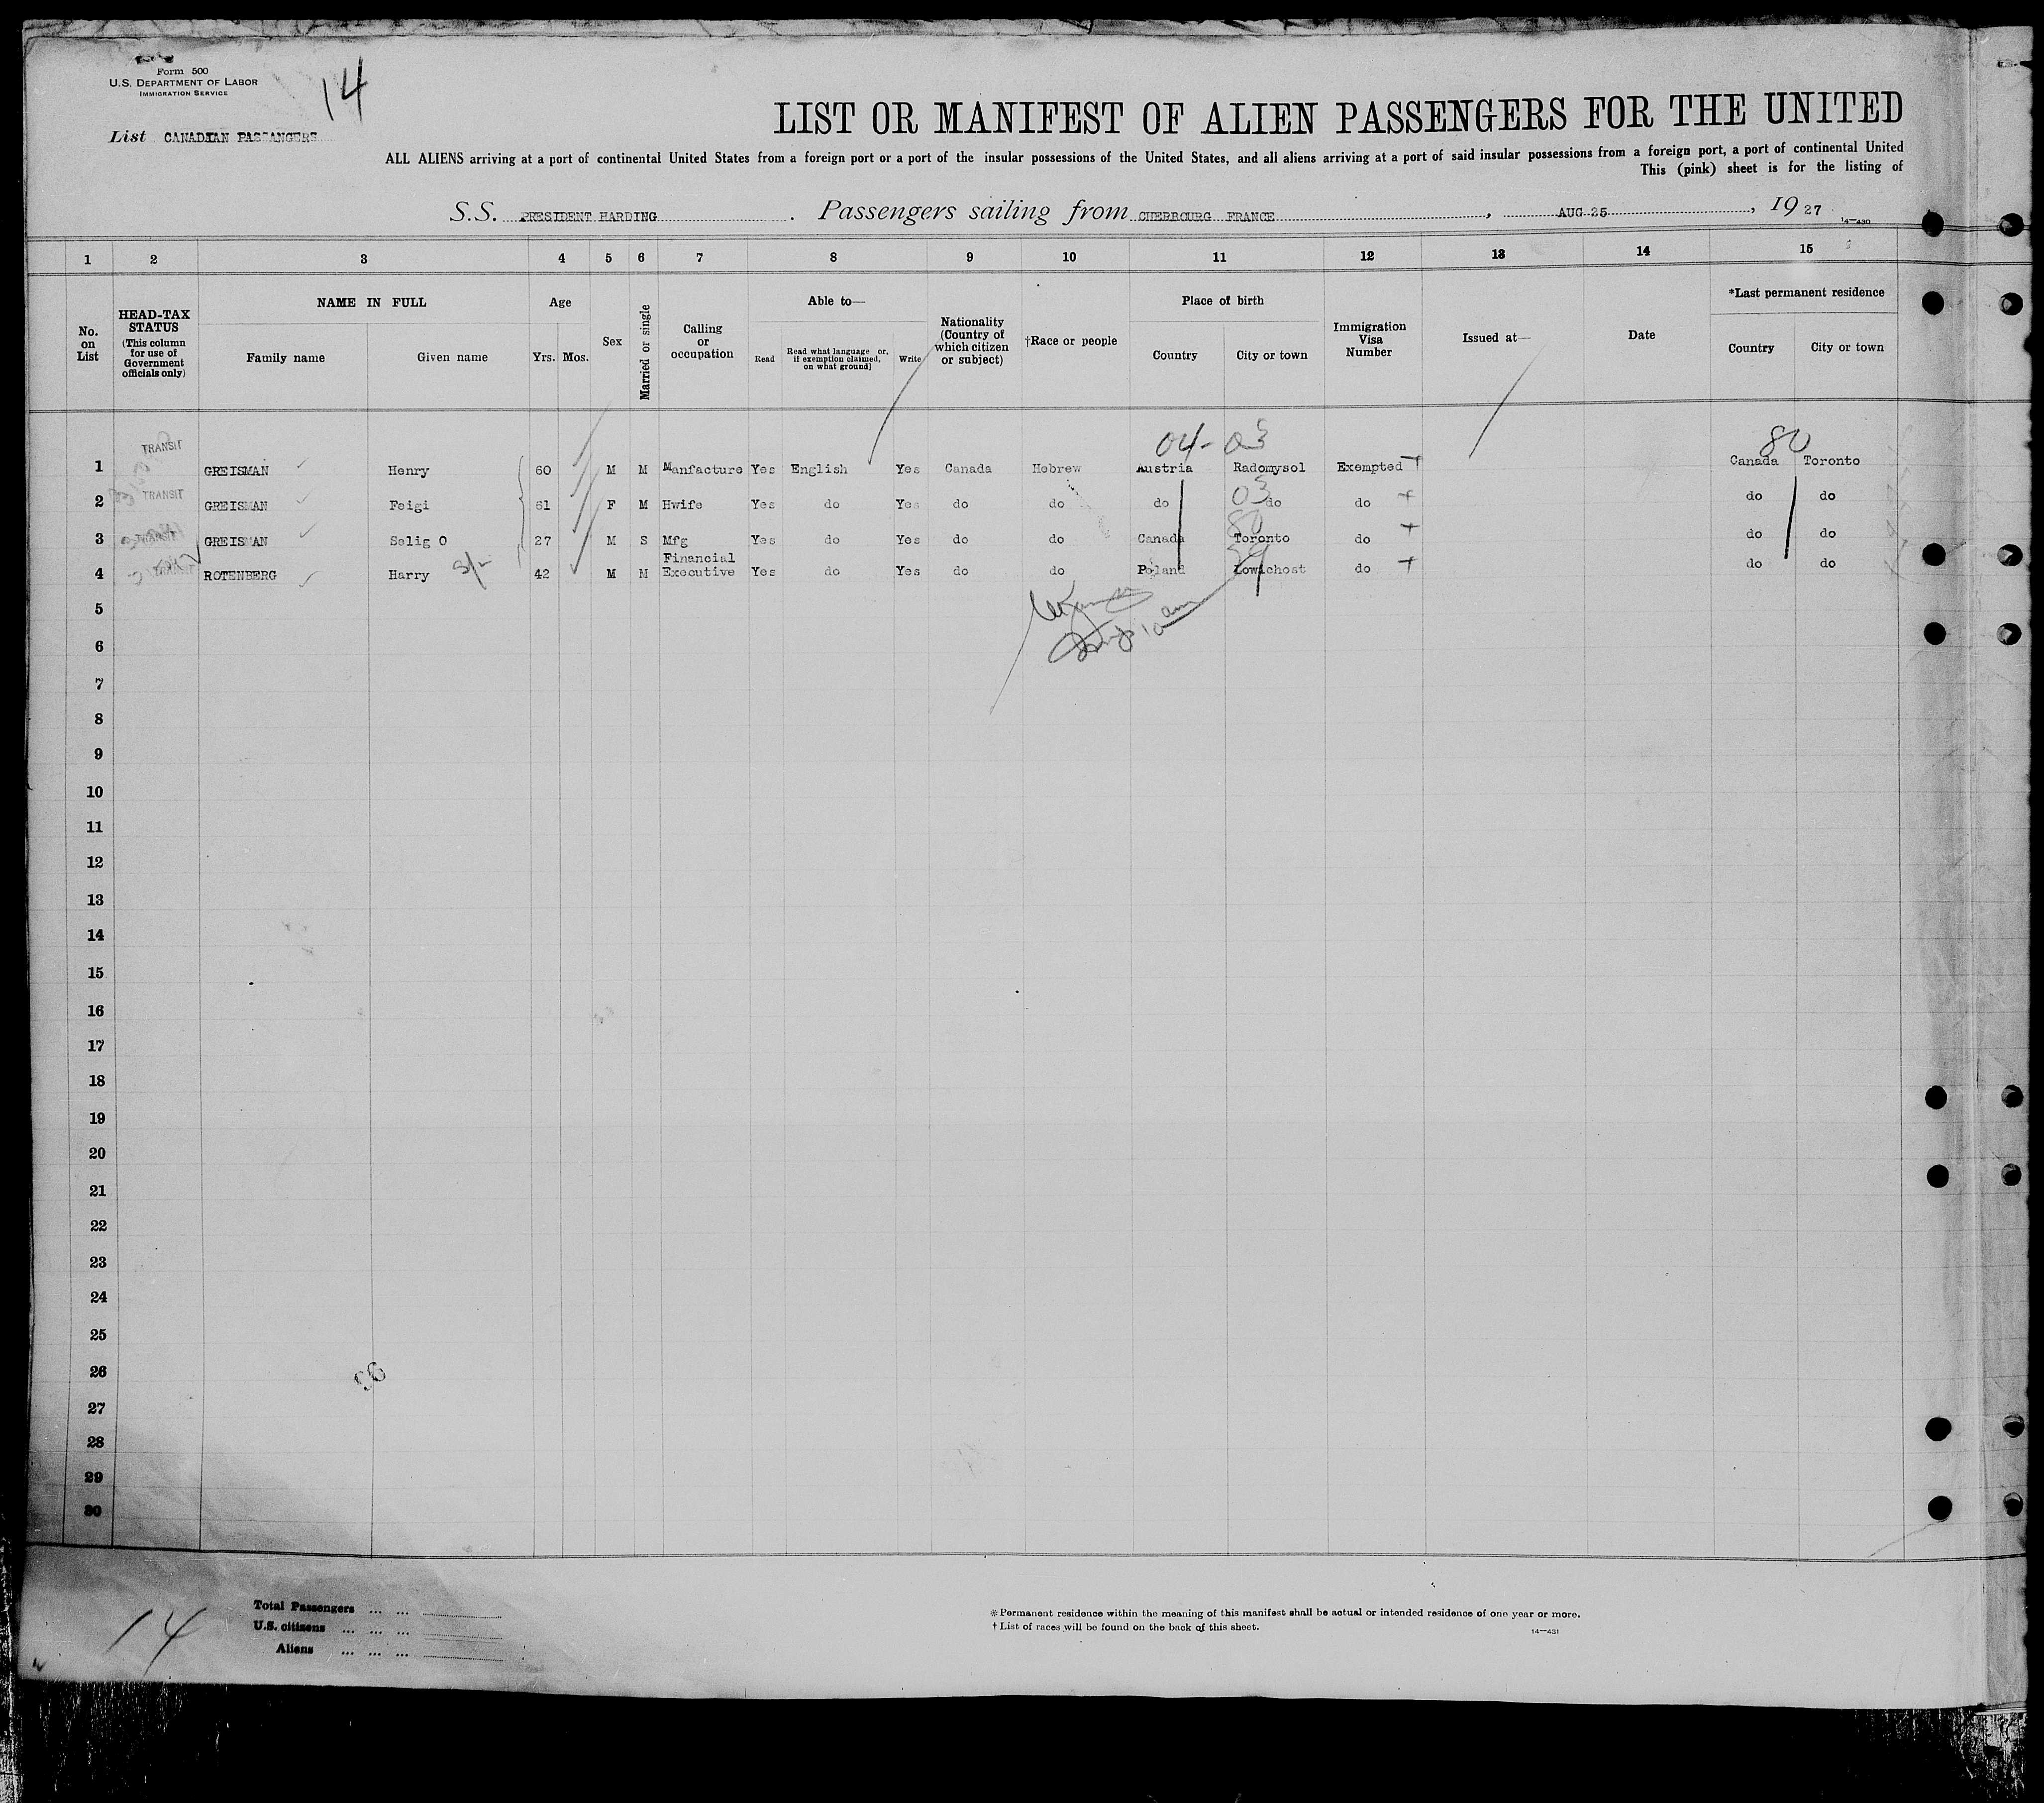 Form 500
U.S. DEPARTMENT OF LABOR
IMMIGRATION SERVICE
14
List CANADIAN PASSANGERS
LIST OR MANIFEST OF ALIEN PASSENGERS FOR THE UNITED
ALL ALIENS arriving at a port of continental United States from a foreign port or a port of the insular possessions of the United States, and all aliens arriving at a port of said insular possessions from a foreign port, a port of continental United
This (pink) sheet is for the listing of
S.S. PRESIDENT HARDING. Passengers sailing from CHERBOURG FRANCE, AUG 25, 1927
14—430
1 2 3 4 5 6 7 8 9 10 11 12 13 14 15
No. on List
HEAD-TAX STATUS (This column for use of Government officials only)
NAME IN FULL
Family name Given name
Age
Yrs. Mos.
Sex
Married or single
Calling or occupation
Able to—
Read Read what language or, if exemption claimed, on what ground] Write
Nationality (Country of which citizen or subject)
†Race or people
Place of birth
Country City or town
Immigration Visa Number
Issued at—
Date
*Last permanent residence
Country City or town
04- 03 80
1 TRANSIT GREISMAN Henry 60 M M Manfacture Yes English Yes Canada Hebrew Austria Radomysol Exempted Canada Toronto
03
2 TRANSIT GREISMAN Feigi 61 F M Hwife Yes do Yes do do do do do do do
80
3 GREISMAN Selig O 27 M S Mfg Yes do Yes do do Canada Toronto do do do
4 ROTENBERG Harry 42 M M Financial Executive Yes do Yes do do Poland Lowichost do do do
5
6
7
8
9
10
11
12
13
14
15
16
17
18
19
20
21
22
23
24
25
26
27
28
29
30
Total Passengers ... ...
U.S. citizens ... ... ...
Aliens ... ... ...
14
* Permanent residence within the meaning of this manifest shall be actual or intended residence of one year or more.
† List of races will be found on the back of this sheet.
14—431